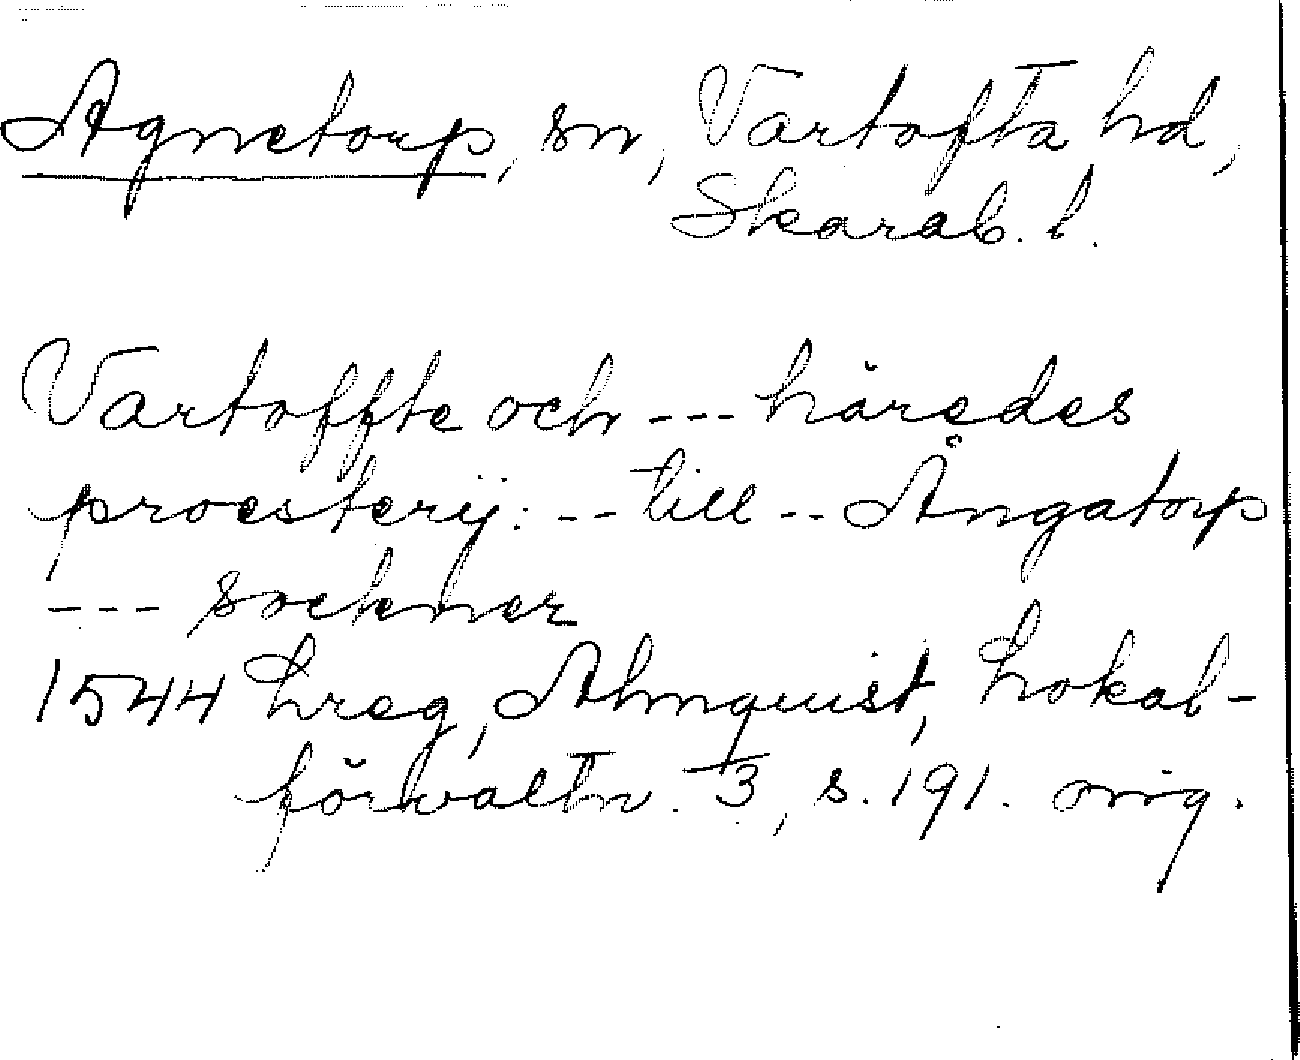 Agnetorp, sn, Vartofta hd,
Skarab. l.
Vartoffte och --- häredes
proesterij: -- till -- Ångatorp
--- sockner
1544 Lreg, Almquist, Lokal-
förvaltn. 3, s. 191. orig.